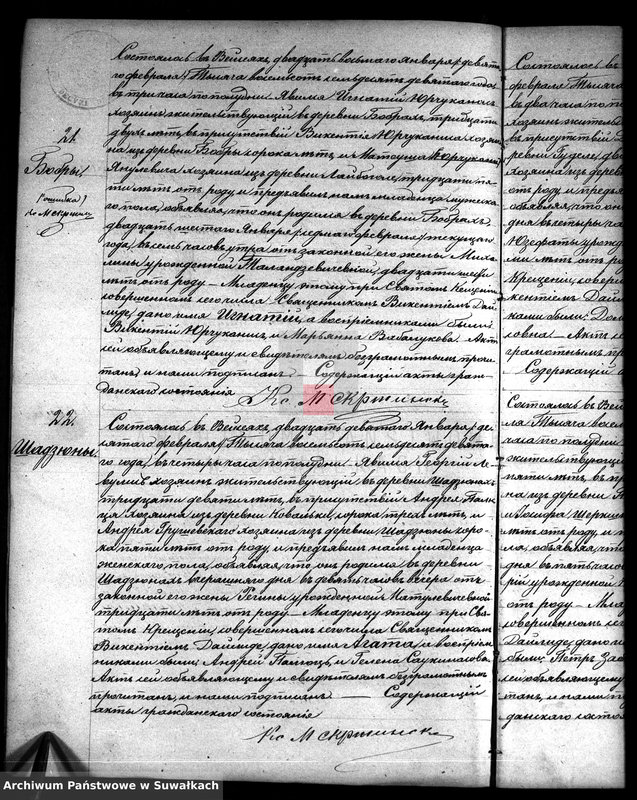 21.
Бобры.
(ошибка)
Кс М Скржинск
Состоялось въ Вейсеяхъ, двадцать восьмаго Января /девята-
го февраля/ Тысяча восемьсотъ семьдесятъ девятаго года
въ три часа по полудни. Явился Игнатій Юргуканисъ
хозяинъ жительствующій въ деревни Бобрахъ, тридцати
двухъ лѣтъ, въ присутствіи Викентія Юргуканиса хозяи-
на изъ деревни Бобры сорока лѣтъ, и Матоуша
Янулевича хозяина изъ деревни тридцати пя-
ти лѣтъ отъ роду, и предъявилъ намъ младенца мужеска-
го пола, объявляя, что онъ родился въ деревни Бобрахъ
двадцать шестаго Января /седьмаго февраля/ текущаго
года, въ семь часовъ утра отъ законной его жены Миха-
лины урожденной двадцати шести
лѣтъ отъ роду. Младенцу этому при Святомъ Крещеніи
совершенномъ сего числа Священникомъ Викентіемъ Дай-
лиде, дано имя Игнатій, а воспріемниками были
Викентій Юргуканисъ и Марьянна Вабалукова. Актъ
сей объявляющему и свидѣтелямъ безграмотнымъ прочи-
танъ, и нами подписанъ. Содержащій акты граж-
данскаго состоянія
Кс М Скржинск
22.
Шадзюны.
Состоялось въ Вейсеяхъ, двадцать девятаго Января /де-
сятаго Февраля/ Тысяча восемьсотъ семьдесятъ девята-
го года, въ четыре часа по полудни. Явился Георгій Ле-
вулисъ хозяинъ жительствующій въ деревни Шадзюнахъ
тридцати девяти лѣтъ, въ присутствіи Андрея
хозяина изъ деревни Ковальки, сорока трехъ лѣтъ, и
Андрея Грушевскаго хозяина изъ деревни Шадзюны соро-
ка пяти лѣтъ отъ роду, и предъявилъ намъ младенца
женскаго пола, объявляя, что онъ родился въ деревни
Шадзюнахъ вчерашняго дня въ девять часовъ вечера отъ
законной его жены Регины урожденной Матулевичевой
тридцати лѣтъ отъ роду. Младенцу этому при Свя-
томъ Крещеніи, совершенномъ сего числа Священникомъ
Викентіемъ Дайлиде, дано имя Агата, а воспріем-
никами были: Андрей и Гелена
Актъ сей объявляющему и свидѣтелямъ безграмотнымъ
прочитанъ, и нами подписанъ. Содержащій
акты гражданскаго состоянія
Кс М Скржинск
Состоялось въ
февраля/ Тысяча
въ два часа по по
хозяинъ жительс
въ присутствіи
ревни
хозяина изъ де
отъ роду и предъя
объявляя, что он
дня въ четыре ча
Юзефаты урожд
ми лѣтъ от
Крещеніи, соверш
кентіемъ Дайл
ками были:
Актъ се
грамотнымъ пр
Содержащій а
Состоялось въ Вей
ла/ Тысяча восем
часа по полудни
жительствующій
пяти лѣтъ, въ пр
на изъ деревни
и Іосифа
лѣтъ отъ роду, и п
ла, объявляя, что
дня въ пять часов
рій урожденной
отъ роду. Мла
совершенномъ се
Дайлиде, дано и
были: Петръ
сей объявляющему
танъ, и нами по
данскаго состоя
Archiwum Państwowe w Suwałkach